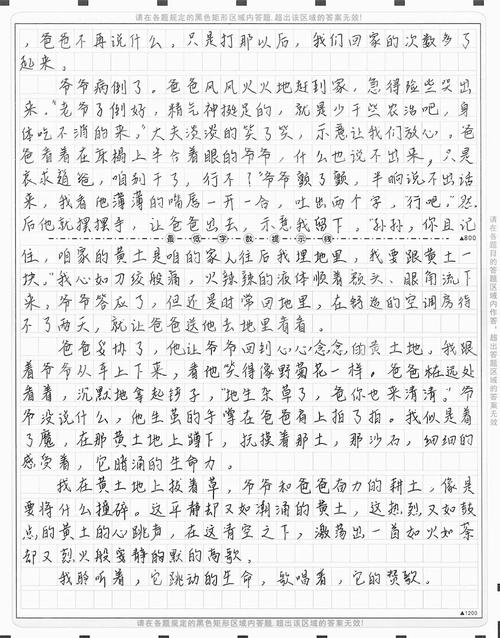 请在各题规定的黑色矩形区域内答题,超出该区域的答案无效!
，爸爸不再说什么，只是打那以后，我们回家的次数多了
起来。
爷爷病倒了。爸爸风风火火地赶到家，急得险些哭出
来。"老爷子倒好，精气神挺足的，就是少干些农活吧，身
体吃不消的来。"大夫淡淡的笑了笑，示意让我们放心。爸
爸看着在床榻上半合着眼的爷爷，什么也说不出来，只是
哀求道爸，咱别干了，行不？"爷爷顿了顿，半晌说不出话
来，我看他薄薄的嘴唇一开一合，吐出两个字，"行吧"。然
后他就摆摆手，让爸爸出去，示意我留下。"孙孙，你且记
最低字数提示线 ▲800
住，咱家的黄土是咱的家人往后我埋地里，我要跟黄土一
块。"我心如刀绞般痛，火辣辣的液体顺着额头、眼角流下
来，爷爷答应了，但还是时常回地里，在舒适的空调房待
不了两天，就让爸爸送他去地里看看。
爸爸妥协了，他让爷爷回到心心念念的黄土地。我跟
着爷爷从车上下来，看他笑得像野菊花一样。爸爸在远处
看着，沉默地拿起锄子，"地生杂草了，爸你也来清清。"爷
爷没说什么，他生茧的手掌在爸爸肩上拍了拍。我似是着
了魔，在那黄土地上蹲下，抚摸着那土，那沙石，细细的
感受着，它暗涌的生命力。
我在黄土地上拔着草，爷爷和爸爸奋力的耕土，像是
要将什么撞碎。这平静却又如潮涌的黄土，这热烈又如鼓
点的黄土的心跳声，在这青空之下，激荡出一首如火如荼
却又烈火般寂静的默的高歌。
我聆听着，它跳动的生命，歌唱着，它的赞歌。
▲1200
请在各题规定的黑色矩形区域内答题,超出该区域的答案无效!
请在各题目的答题区域内作答，超出答题区域的答案无效